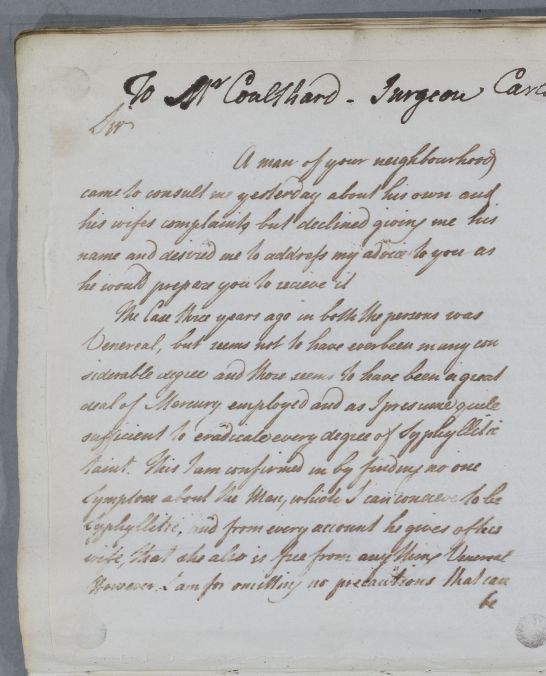 To Mr Coulthard - Surgeon Carl
Sir
A man of your neighbourhood
came to consult me yesterday about his own and
his wifes complaints but declined giving me his
name and desired me to address my advice to you as
he would prepare you to recieve it
The Case three years ago in both the persons was
Venereal, but seems not to have ever been in any con
siderable degree and there seems to have been a great
deal of Mercury employed and as I presume quite
sufficient to eradicate every degree of Syphyllitic
taint. This I am confirmed in by finding no one
Symptom about the Man, which I can concieve to be
Syphyllitic, and from every account he gives of his
wife, that she also is free from any thing Venereal
However I am for omitting no precautions that can
be